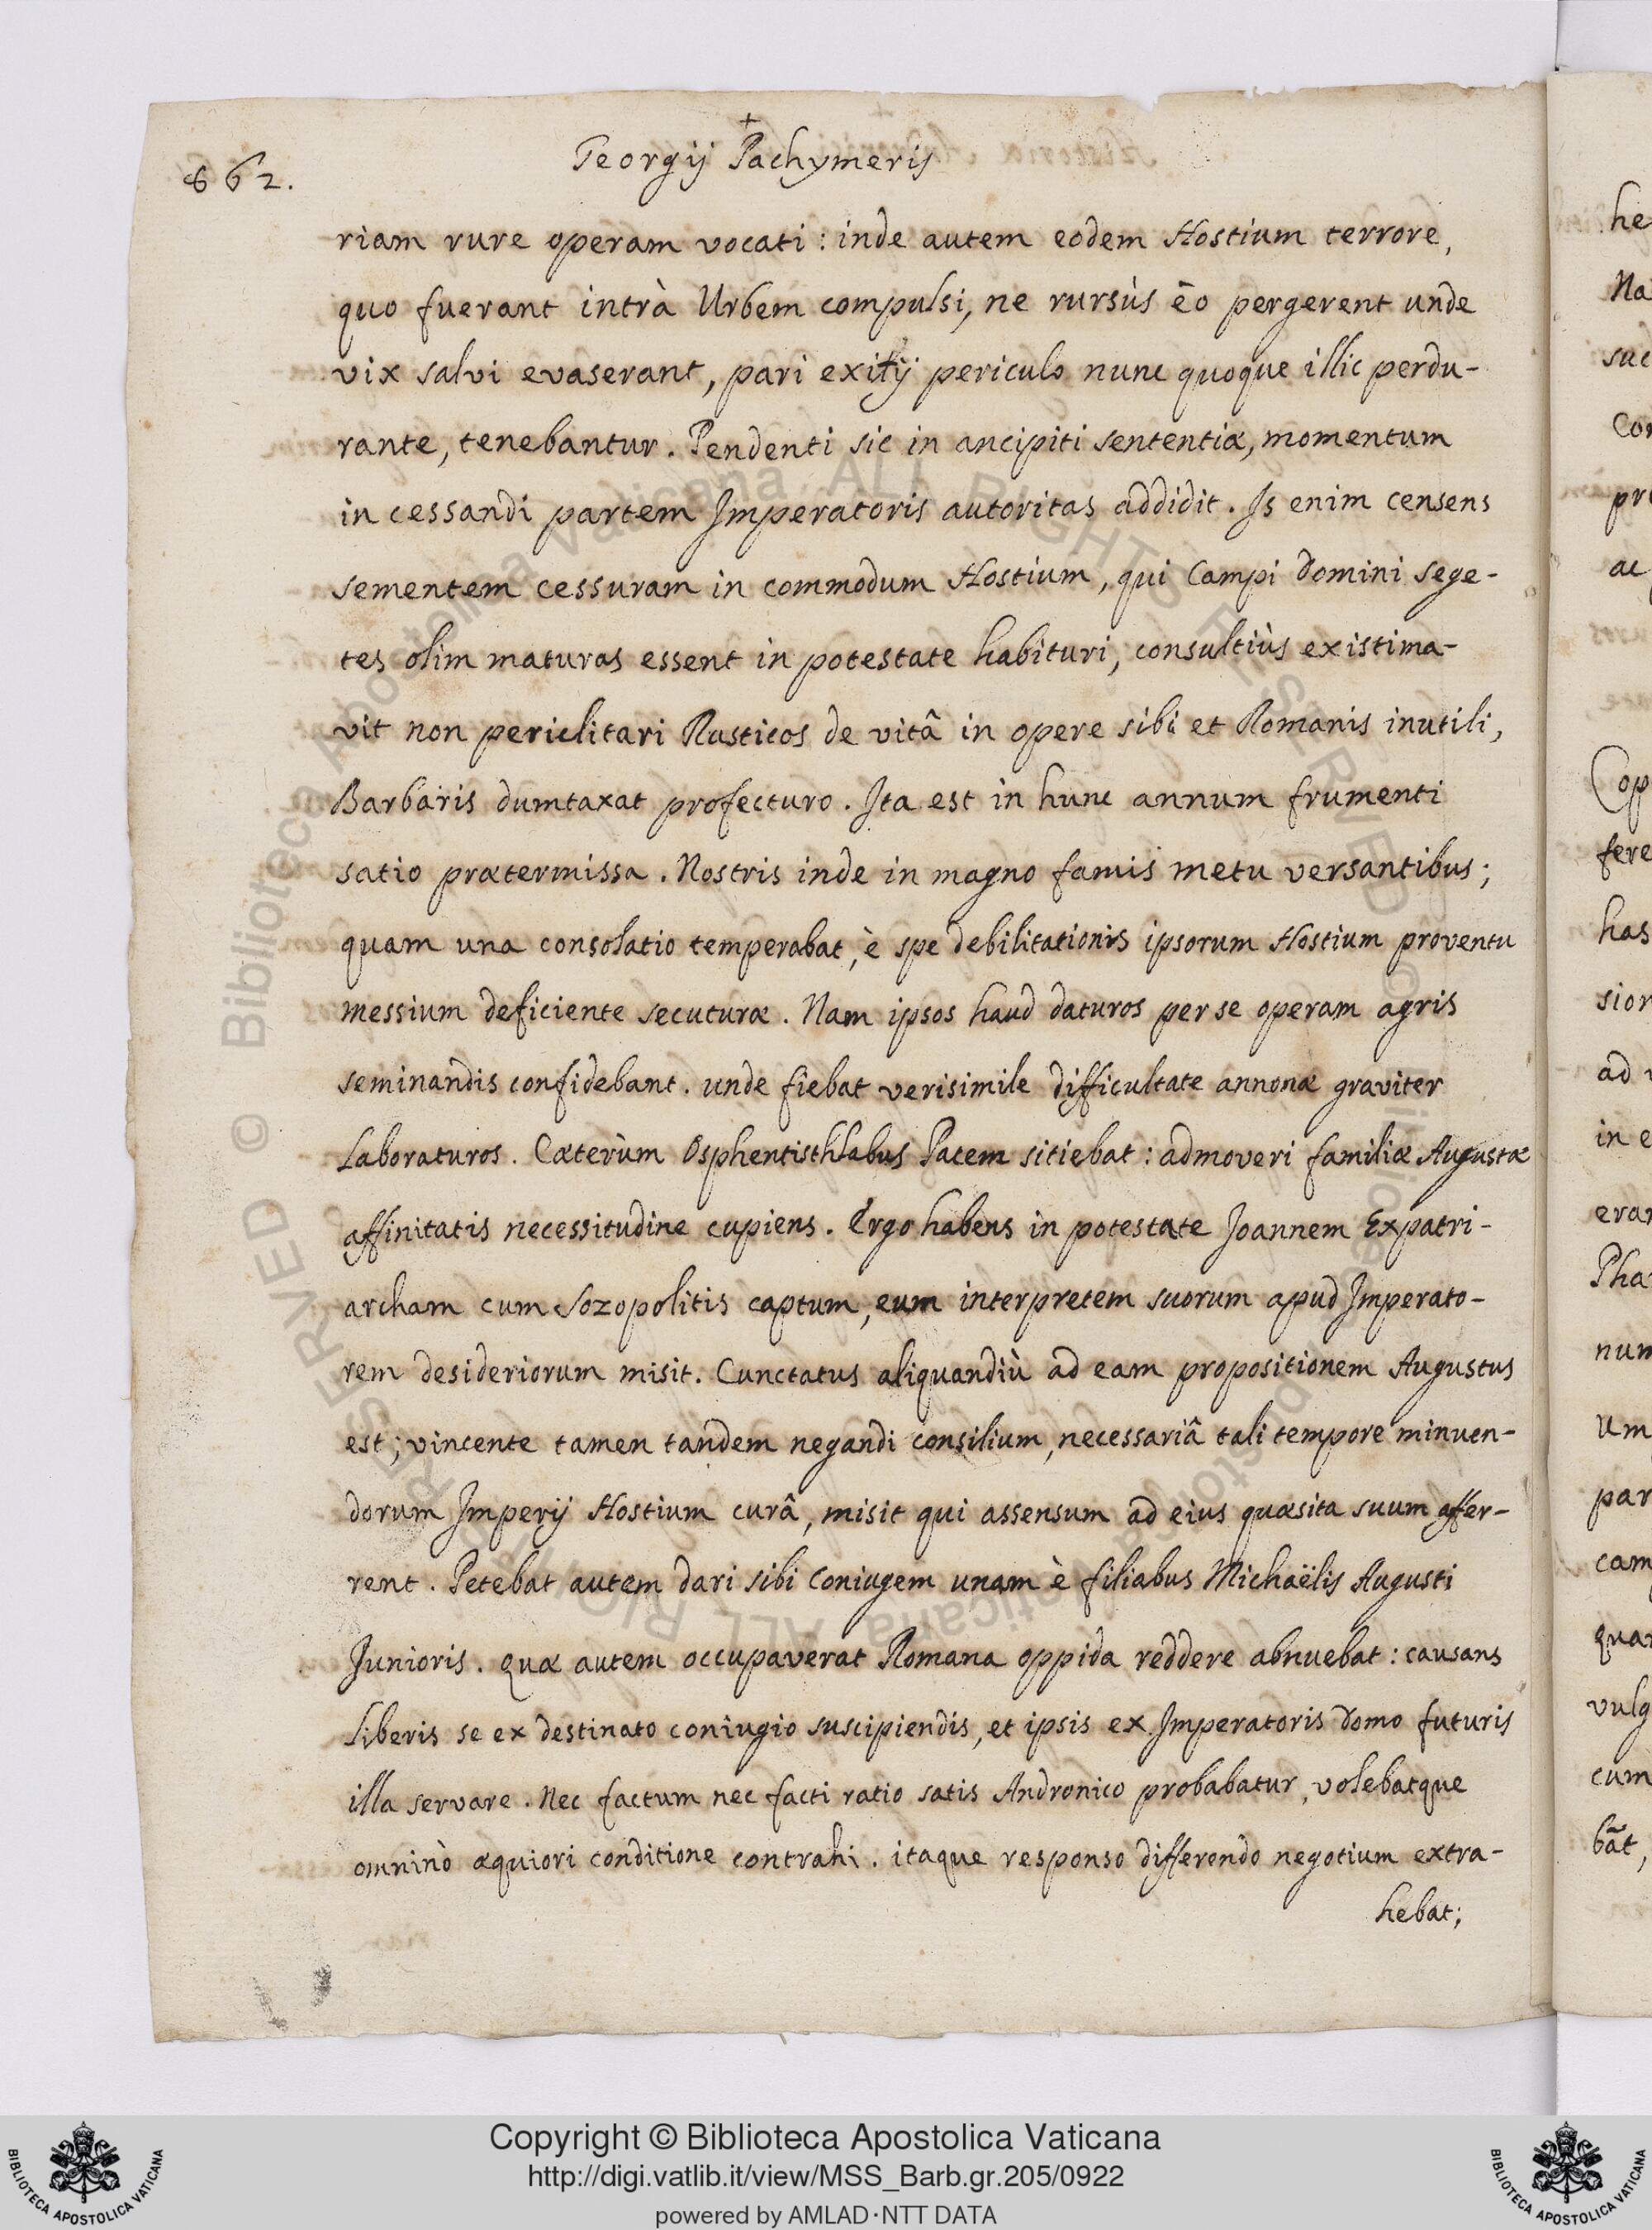 862.
Georgij Pachymeris
riam rure operam vocati : inde autem eodem Hostium terrore,
quo fuerant intrà Urbem compulsi, ne rursùs eo pergerent unde
vix salvi evaserant, pari exitij periculo nunc quoque illic perdu-
rante, tenebantur. Pendenti sic in ancipiti sententiæ, momentum
in cessandi partem Imperatoris autoritas addidit. Is enim censens
sementem cessuram in commodum Hostium, qui Campi domini sege-
tes olim maturas essent in potestate habituri, consultiùs existima-
vit non periclitari Rusticos de vitâ in opere sibi et Romanis inutili,
Barbaris dumtaxat profecturo. Ita est in hunc annum frumenti
satio prætermissa. Nostris inde in magno famis metu versantibus;
quam una consolatio temperabat, è spe debilitationis ipsorum Hostium proventu
messium deficiente secuturæ. Nam ipsos haud daturos per se operam agris
seminandis confidebant. unde fiebat verisimile difficultate annonæ graviter
Laboraturos. Cæterùm Osphentisthlabus Pacem sitiebat : admoveri familiæ Augustæ
affinitatis necessitudine cupiens. Ergo habens in potestate Joannem Expatri-
archam cum Sozopolitis captum, eum interpretem suorum apud Imperato-
rem desideriorum misit. Cunctatus aliquandiù ad eam propositionem Augustus
est; vincente tamen tandem negandi consilium, necessariâ tali tempore minuen-
dorum Imperij Hostium curâ, misit qui assensum ad eius quæsita suum affer-
rent. Petebat autem dari sibi Coniugem unam è filiabus Michaëlis Augusti
Junioris. quæ autem occupaverat Romana oppida reddere abnuebat : causans
Liberis se ex destinato coniugio suscipiendis, et ipsis ex Imperatoris domo futuris
illa servare. Nec factum nec facti ratio satis Andronico probabatur, volebatque
omninò æquiori conditione contrahi. itaque responso differendo negotium extra-
hebat;
he
Na
suc
Con
pr
ac
Cop
fere
has
sion
ad
in e
eran
Pha
num
Um
par
cam
quar
vulg
cum
bãt,
© Biblioteca Apostolica Vaticana ALL RIGHTS RESERVED
© Biblioteca Apostolica Vaticana ALL RIGHTS RESERVED
BIBLIOTECA APOSTOLICA VATICANA
Copyright © Biblioteca Apostolica Vaticana
http://digi.vatlib.it/view/MSS_Barb.gr.205/0922
powered by AMLAD·NTT DATA
BIBLIOTECA APOSTOLICA VATICANA